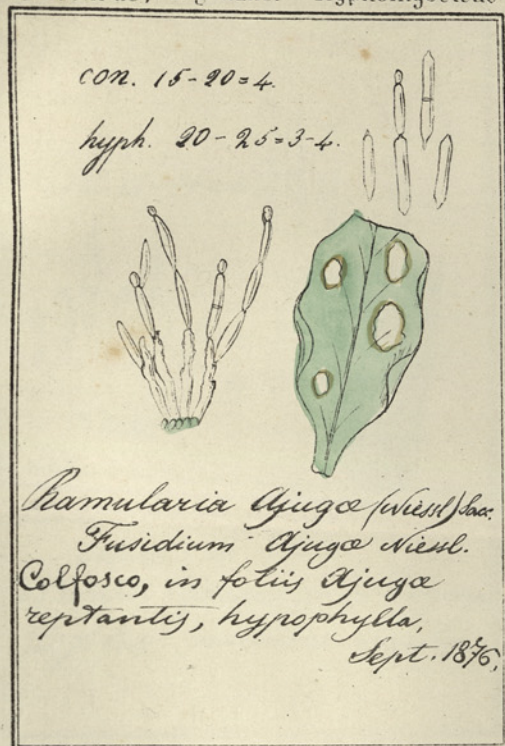 con. 15-20=4.
hyph. 20-25=3-4.
Ramularia Ajugæ (Niessl) Sacc.
Fusidium Ajugæ Niessl.
Colfosco, in foliis Ajugæ
reptantis, hypophylla,
Sept. 1876.